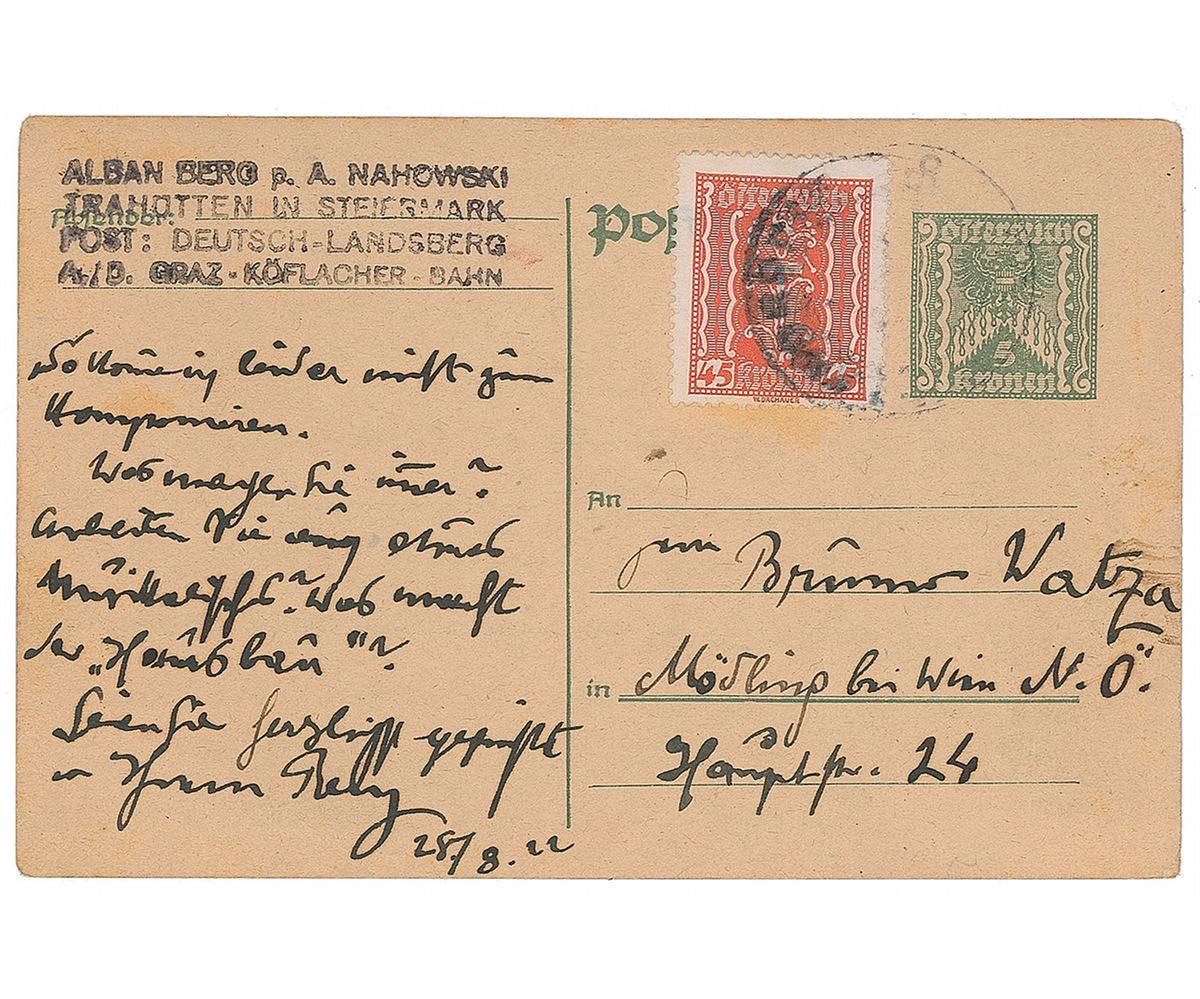 ALBAN BERG p. A. NAHOWSKI
TRAHÜTTEN IN STEIERMARK
Absender:
POST: DEUTSCH-LANDSBERG
A./D. GRAZ-KÖFLACHER-BAHN
So komme ich leider nicht zum
Komponieren.
Was machen Sie immer?
Arbeiten Sie auch etwas
Musikalisches? Was macht
der „Hausbau"?
Seien Sie herzlichst gegrüßt
v Ihrem Berg
25/8.22
Pos
Österreich
45 Kronen 45
W.DACHAUER
Österreich
5
Kronen
An
Bruno Watza
in Mödling bei Wien N.Ö.
Hauptstr. 24